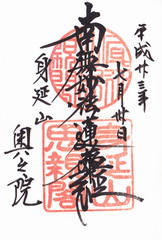 平成廿三年
七月廿日
南無妙法蓮華経
身延山
奥之院
思親閣